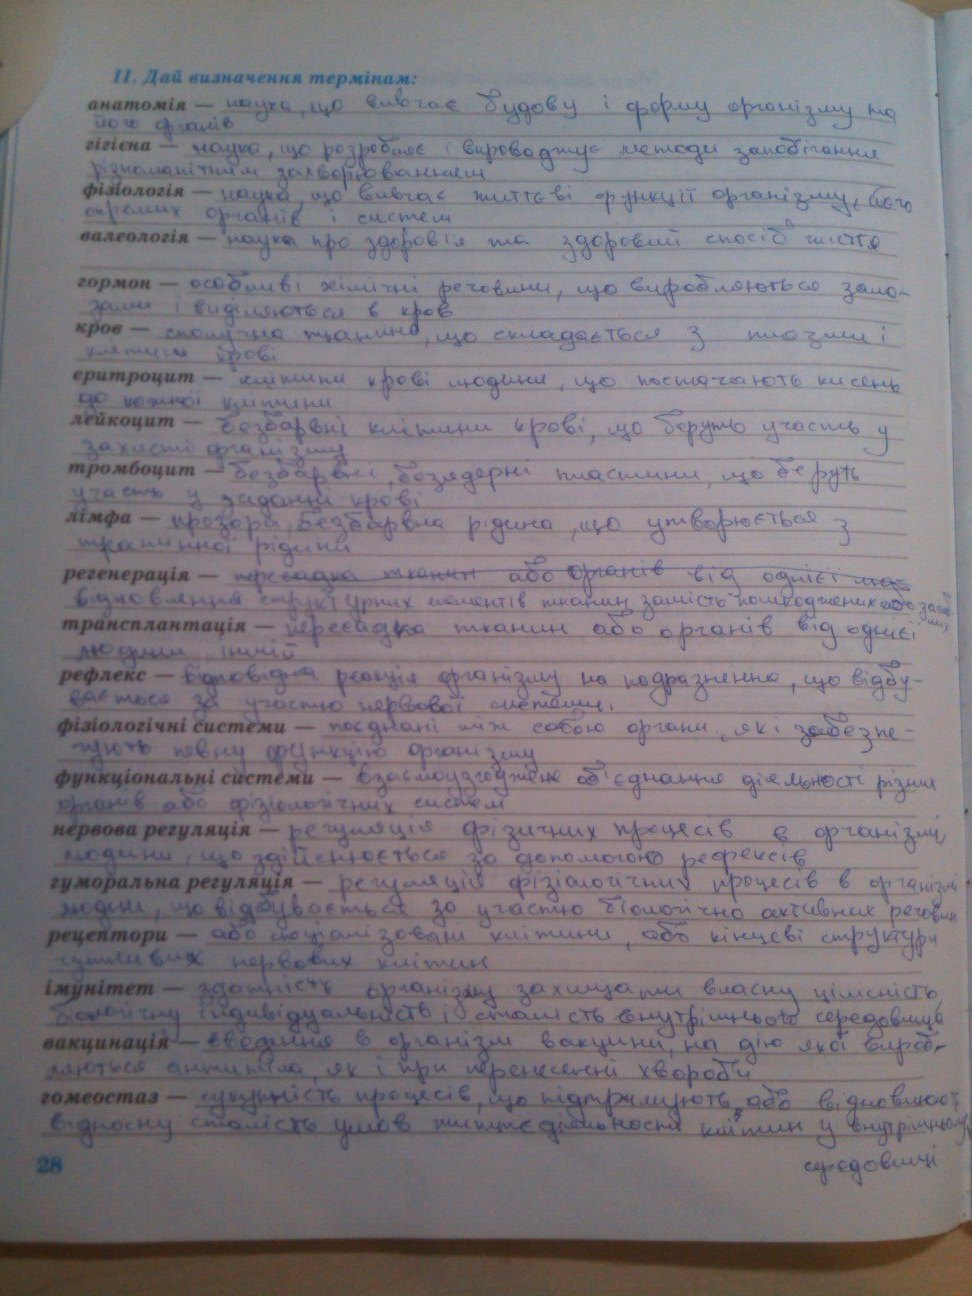 II. Дай визначення термінам:
анатомія — наука, що вивчає будову і форму організму та
його органів
гігієна — наука, що розробляє і впроваджує методи запобігання
різноманітним захворюванням
фізіологія — наука, що вивчає життєві функції організму, його
окремих органів і систем
валеологія — наука про здоров'я та здоровий спосіб життя
гормон — особливі хімічні речовини, що виробляються зало-
зами і виділяються в кров
кров — сполучна тканина, що складається з плазми і
клітин крові
еритроцит — клітини крові людини, що постачають кисень
до кожної клітини
лейкоцит — безбарвні клітини крові, що беруть участь у
захисті організму
тромбоцит — безбарвні, без'ядерні пластини, що беруть
участь у зсіданні крові
лімфа — прозора, безбарвна рідина, що утворюється з
тканинної рідини
регенерація — пересадка тканин або органів від однієї
відновлення структурних елементів тканин замість пошкоджених або
трансплантація — пересадка тканин або органів від однієї
людини іншій
рефлекс — відповідна реакція організму на подразнення, що відбу-
вається за участю нервової системи.
фізіологічні системи — поєднані між собою органи, які забезпе-
чують певну функцію організму
функціональні системи — взаємоузгоджене об'єднання діяльності різних
органів або фізіологічних систем
нервова регуляція — регуляція фізичних процесів в організмі
людини, що здійснюється за допомогою рефлексів
гуморальна регуляція — регуляція фізіологічних процесів в організмі
людини, що відбувається за участю біологічно активних речовин
рецептори — або спеціалізовані клітини, або кінцеві структури
чутливих нервових клітин
імунітет — здатність організму захищати власну цілісність,
біологічну індивідуальність і сталість внутрішнього середовища
вакцинація — введення в організм вакцини, на дію якої вироб-
ляються антитіла, як і при перенесенні хвороби
гомеостаз — сукупність процесів, що підтримують або відновлюють
відносну сталість умов життєдіяльності клітин у внутрішньому
28 середовищі